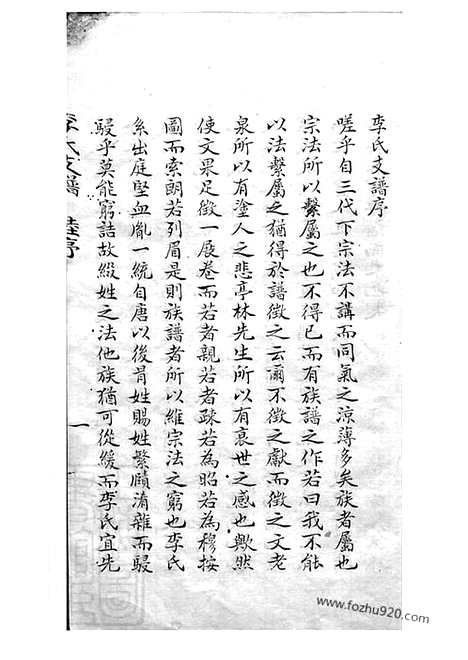 李氏支譜序
嗟乎自三代下宗法不講而同氣之涼薄多矣族者屬也
宗法所以繫屬之也不得已而有族譜之作若曰我不能
以法繫屬之猶得於譜徵之云爾不徵之獻而徵之文老
泉所以有塗人之悲亭林先生所以有哀世之感也歟然
使文果足徵一展卷而若者親若者疎若為昭若為穆按
圖而索朗若列眉是則族譜者所以維宗法之窮也李氏
系出庭堅血胤一統自唐以後冐姓賜姓繁賾淆雜而駸
駸乎莫能窮詰故綴姓之法他族猶可從緩而李氏宜先
李氏支譜 陸序 一
www.fozhu920.com